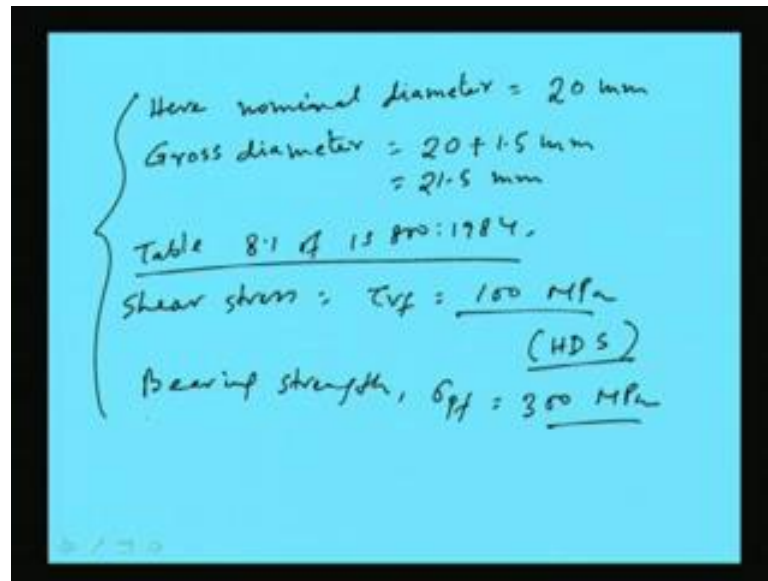 Here nominal diameter = 20 mm
Gross diameter = 20 + 1.5 mm
= 21.5 mm
Table 8.1 of IS 800:1984.
Shear stress = τvf = 100 MPa
(HDS)
Bearing strength, σpf = 300 MPa